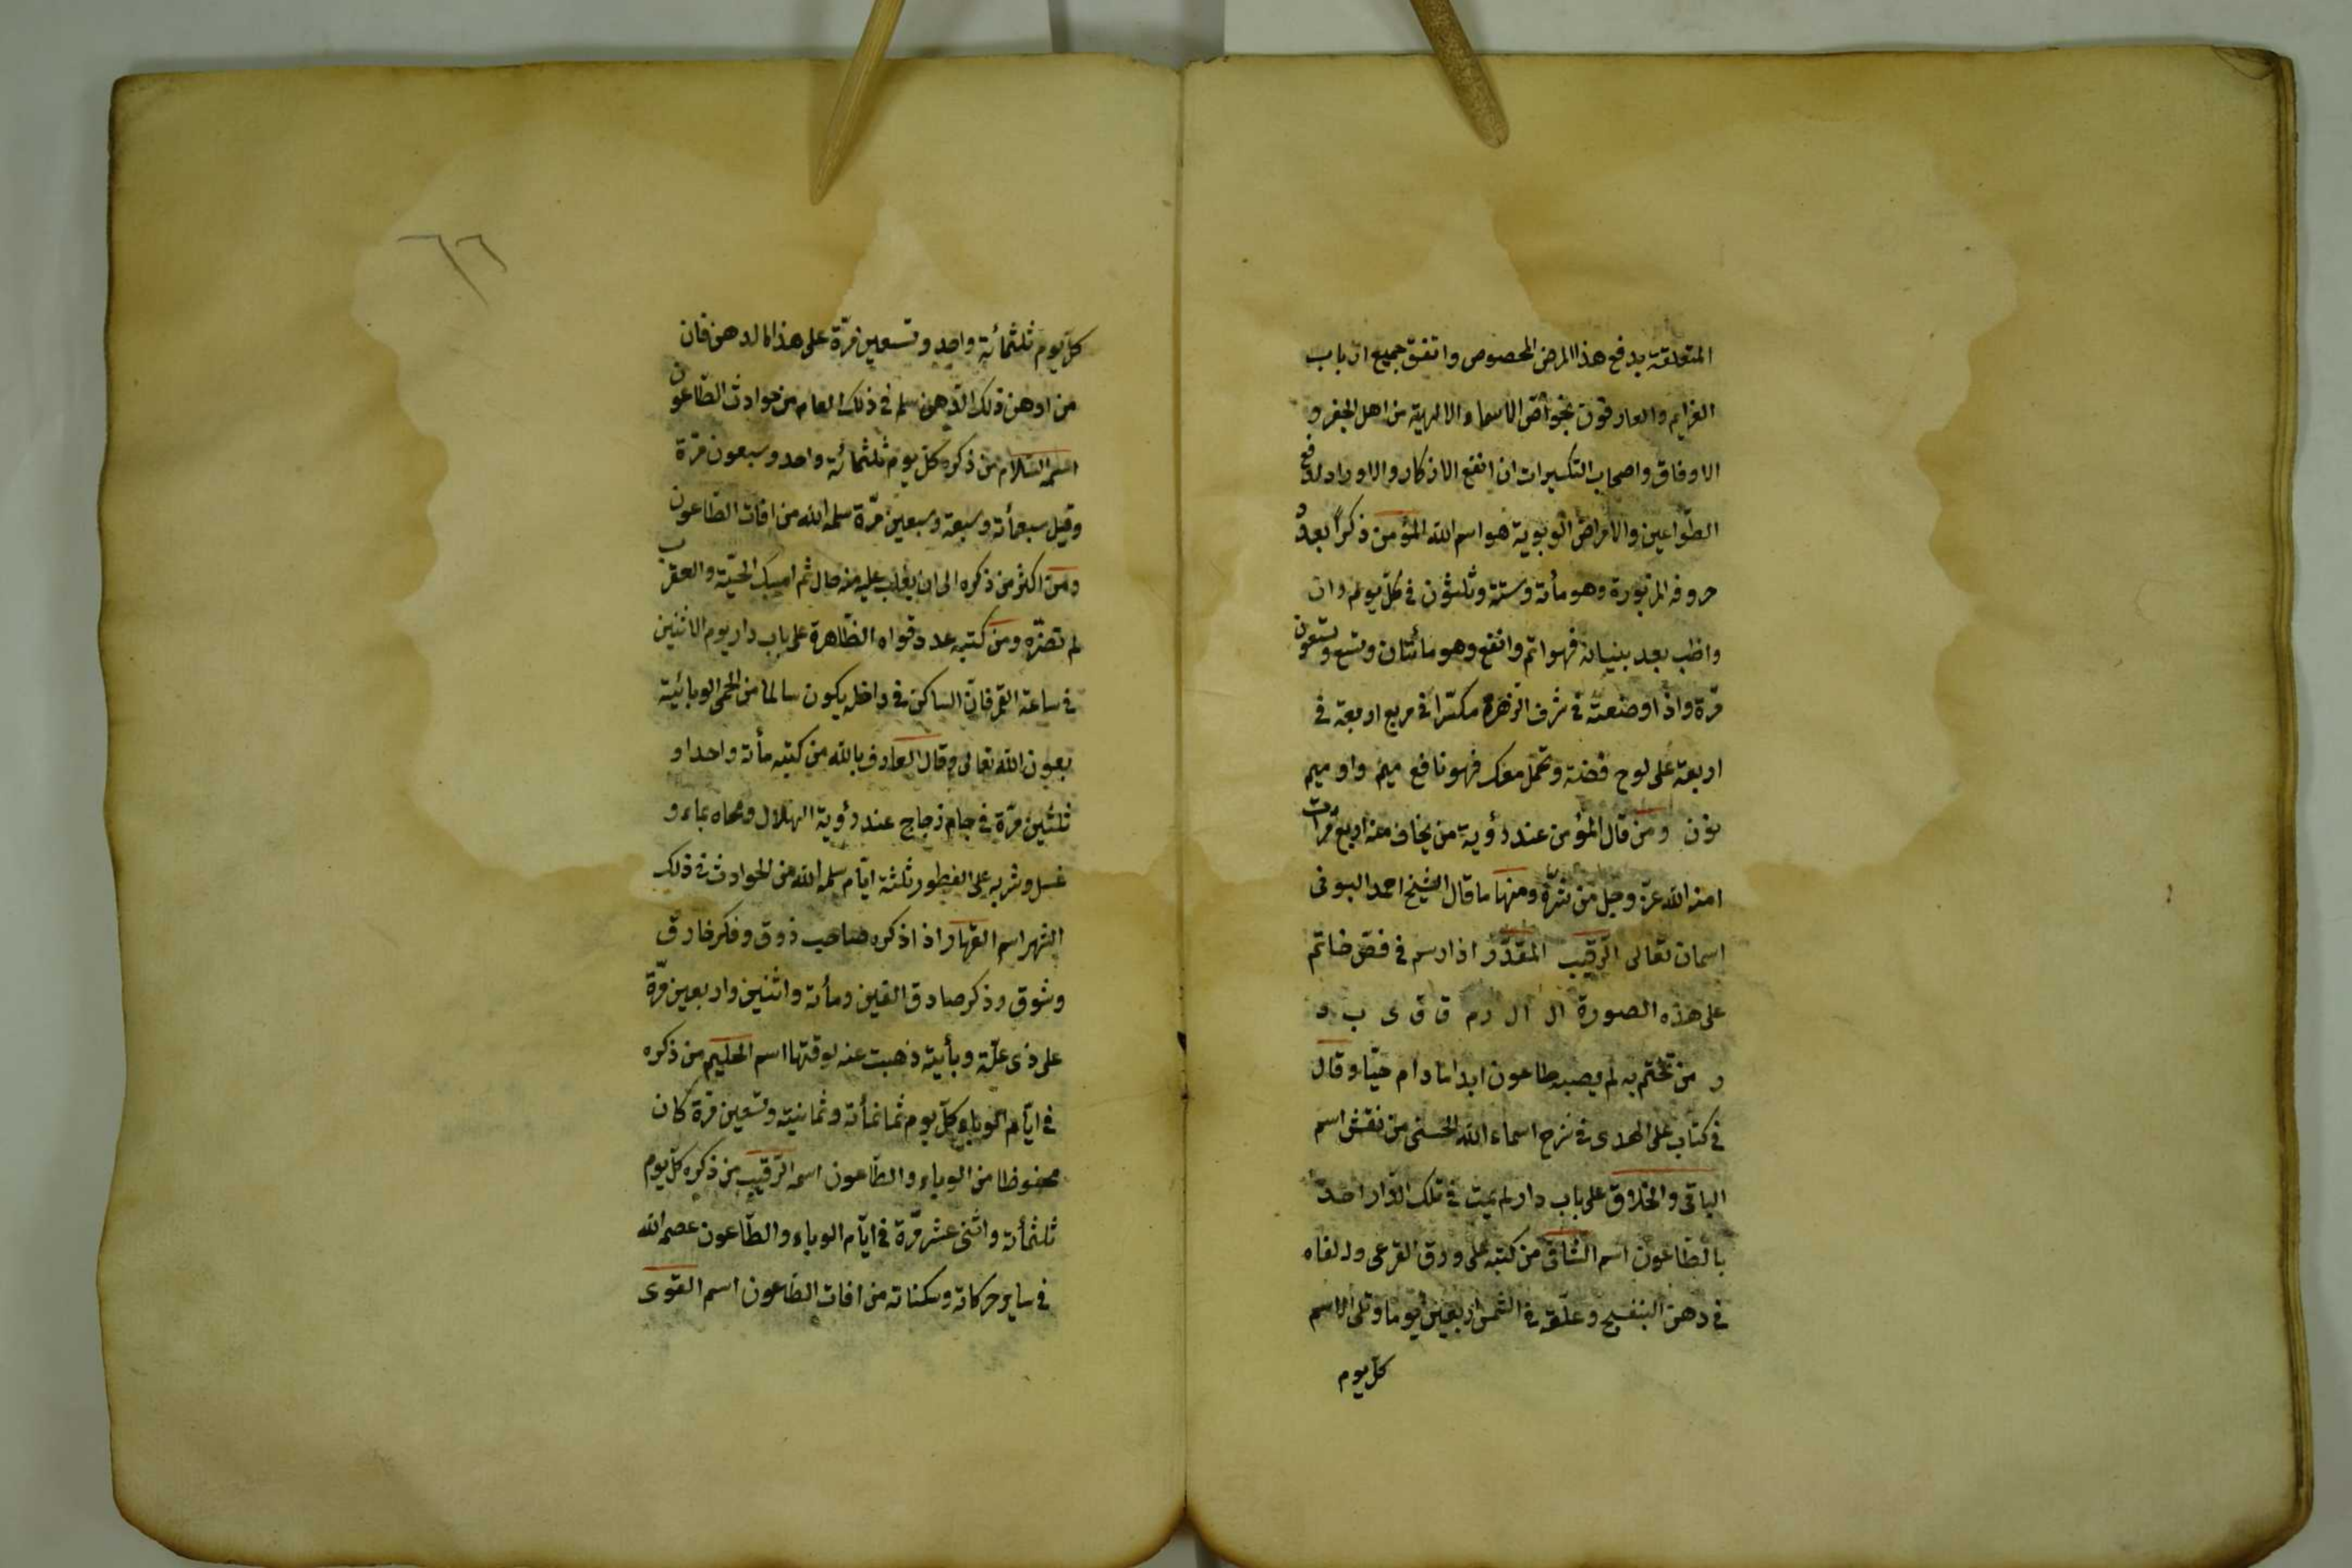 المتعلقة بدفع هذا المرض المخصوص واتفق جميع ارباب
العزايم والعارفون بخواصّ الاسماء الالهية من اهل الجفر و
الاوفاق واصحاب التكسيرات ان انفع الاذكار والاوراد لدفع
الطّواعين والامراض الوبوية هو اسم الله المؤمن ذكرًا بعدد
حروفه المزبورة وهو مأته وستة وثلثون فى كلّ يوم وان
واظب بعدد بينياته فهو اتم وانفع وهو مائتان وتسع وتسعون
مرّة واذا وضعته فى شرف الزهرة مكسّرا فى مربع اربعة فى
اربعة على لوح فضة وتحمل معك فهو نافع ميم واو ميم
نون ومن قال المؤمن عند رؤية من يخاف منه اربع مرات
امنه الله عزّ وجلّ من شرّه ومنها ما قال الشيخ احمد البونى
اسمان تعالى الرّقيب المقدّر اذا رسم فى فصّ خاتم
على هذه الصورة ال ال رم ق ق ى ب د
ر من تختّم به لم يصبه طاعون ابدا ما دام حيّا وقال
فى كتاب على الهدى فى شرح اسماء الله الحسنى من نقش اسم
الباقى والخلاق على باب دار لم يمت فى تلك الدّار احد
بالطّاعون اسم الشّافى من كتبه على ورق القرعى و
فى دهن البنفسج وعلّقه فى الشمس اربعين يوما وتلى الاسم
كلّ يوم
٦٦
كلّ يوم ثلثمائة واحد وتسعين مرّة على هذا الدهن فان
من ادهن ذلك الدّهن سلم فى ذلك العام من حوادث الطّاعون
اسمه السّلام من ذكره كلّ يوم ثلثمائة واحد وسبعون مرّة
وقيل سبعمأته وسبعة وسبعين مرّة سلمه الله من افات الطّاعون
ومن اكثر من ذكره الى ان يغلب عليه منه حال ثم امسك الحيّة والعقرب
لم تضرّه ومن كتبه عدد قواه الظّاهرة على باب دار يوم الاثنين
فى ساعة القمر فان الساكن فى داخله يكون سالما من الحمى الوبائية
بعون الله تعالى وقال العارف بالله من كتبه مأته واحدا و
ثلثين مرّة فى جام زجاج عند رؤية الهلال ومحاه بماء و
عسل وشربه على الفطور ثلثة ايّام سلمه الله من الحوادث فى ذلك
الشهر اسم القهّار اذا ذكره صاحب ذوق وفكر خارق
وشوق وذكر صادق الفين ومأته واثنين واربعين مرّة
على ذى علّة وبأية ذهبت عنه لوقتها اسم الحليم من ذكره
فى ايّام الوباء كلّ يوم ثمانمأته وثمانية وتسعين مرّة كان
محفوظا من الوباء والطّاعون اسمه الرّقيب من ذكره كلّ يوم
ثلثمأته واثنى عشر مرّة فى ايّام الوباء والطّاعون عصمه الله
فى ساير حركاته وسكناته من افات الطّاعون اسم القوى